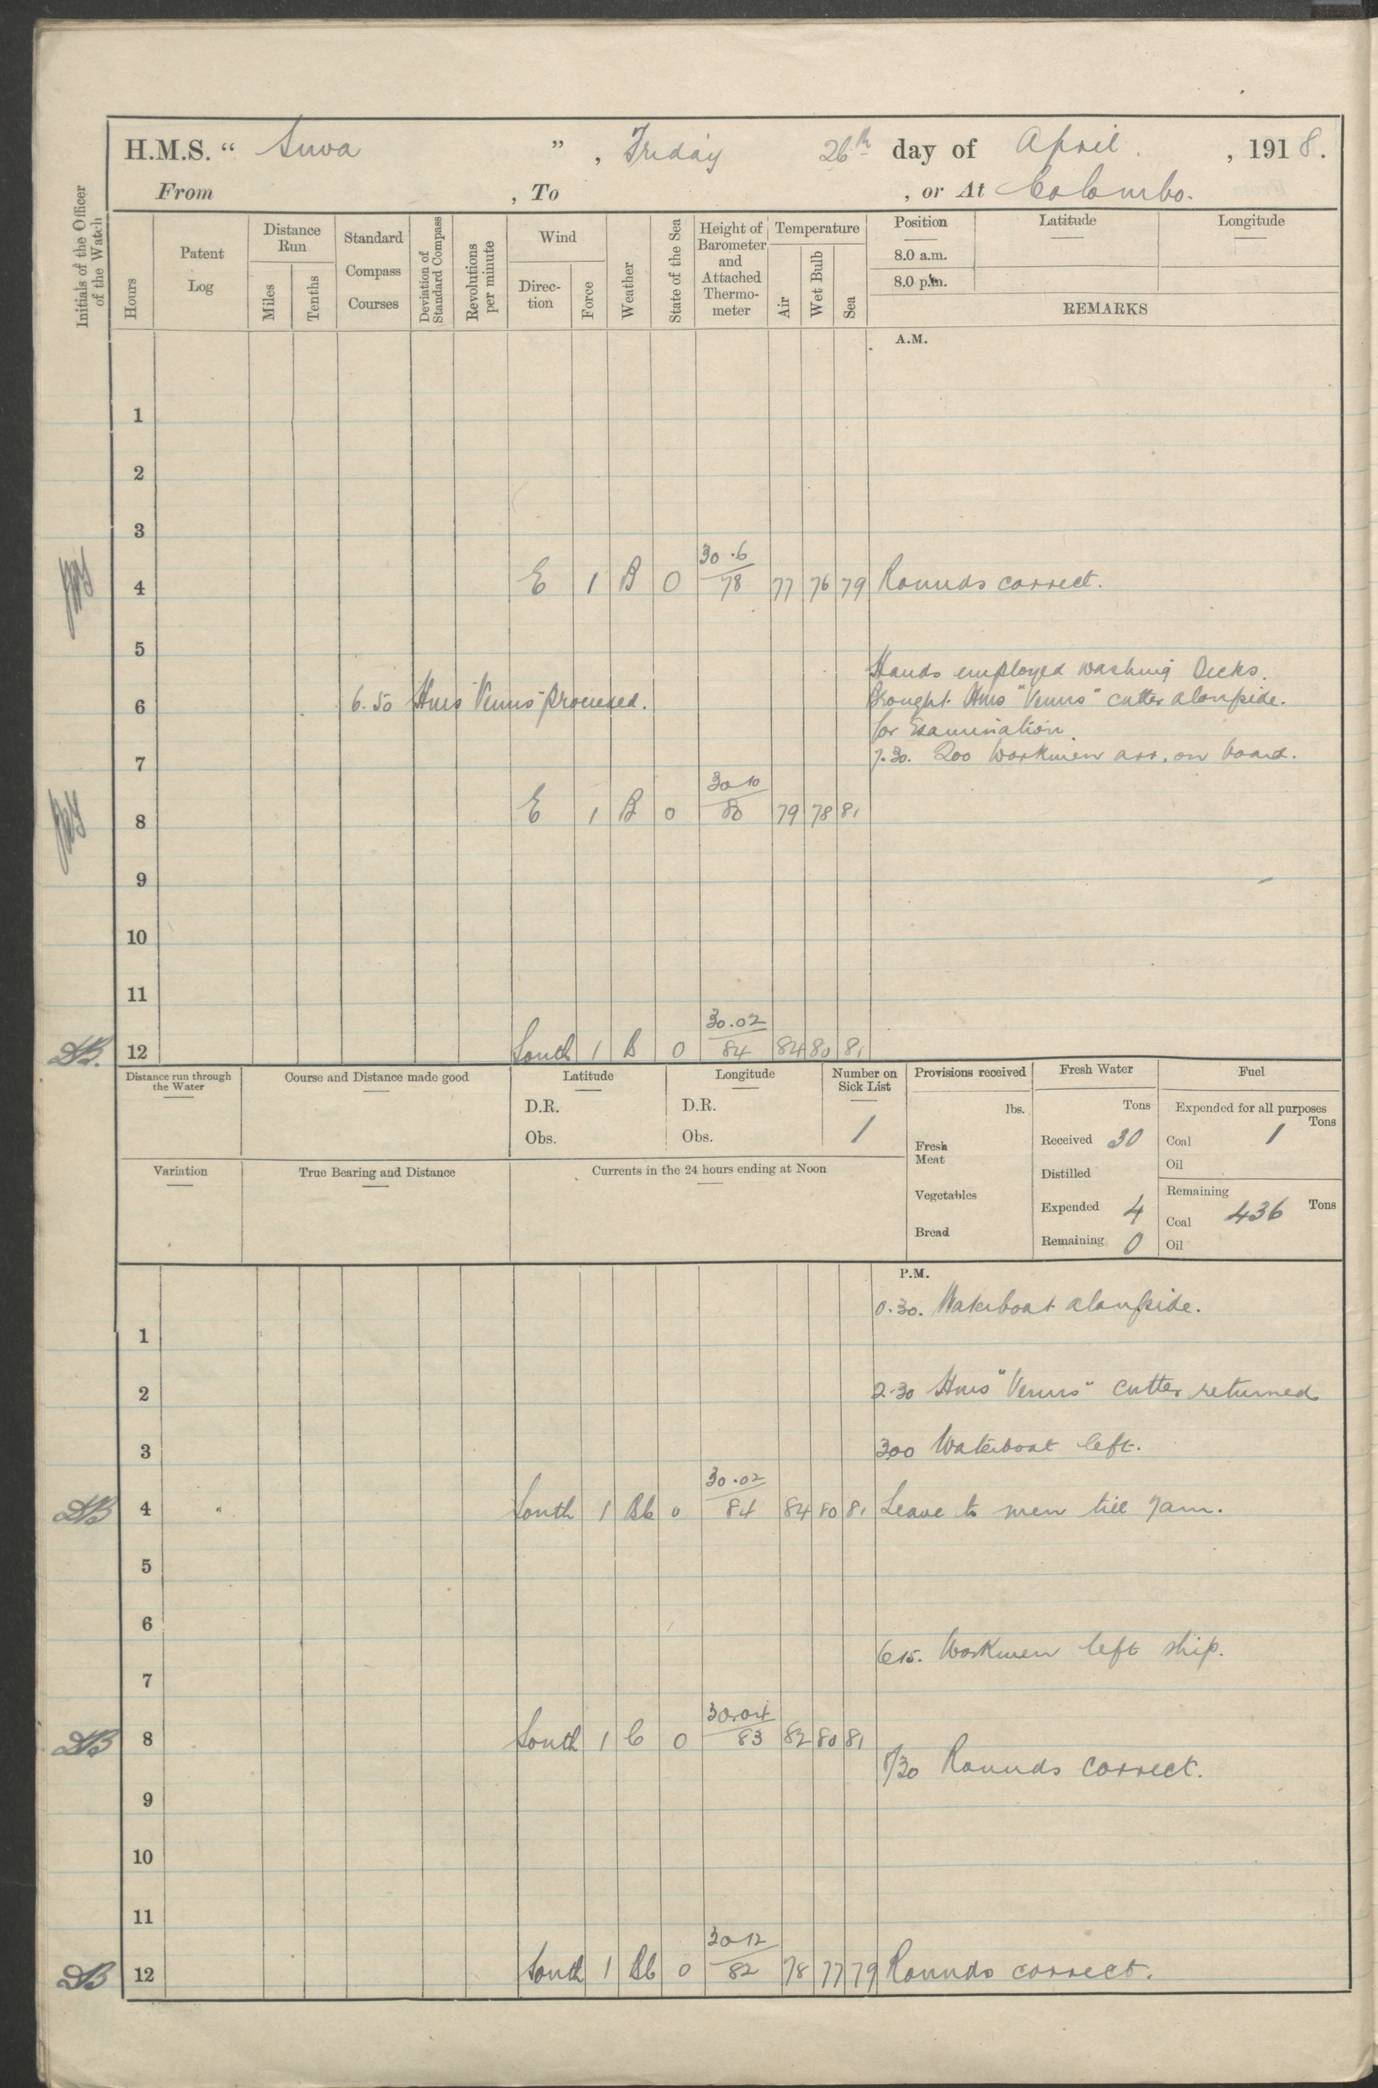 H.M.S. “ Suva ” , Friday 26th day of April , 1918.
From , To , or At Colombo.
Initials of the Officer of the Watch
Hours
Patent Log
Distance Run
Miles
Tenths
Standard Compass Courses
Deviation of Standard Compass
Revolutions per minute
Wind
Direction
Force
Weather
State of the Sea
Height of Barometer and Attached Thermometer
Temperature
Air
Wet Bulb
Sea
Position Latitude Longitude
8.0 a.m.
8.0 p.m.
REMARKS
A.M.
1
2
3
30.6
4 E 1 B 0 78 77 76 79 Rounds correct.
5
Hands employed washing Decks.
6 6.50 Hms "Venus" Proceeded. Brought Hms "Venus" cutter alongside.
for Examination.
7 7.30. 200 Workmen arr. on board.
30 10
8 E 1 B 0 80 79 78 81
9
10
11
30.02
DB. 12 South 1 B 0 84 84 80 81
Distance run through the Water
Course and Distance made good
Latitude
D.R.
Obs.
Longitude
D.R.
Obs.
Number on Sick List
1
Variation
True Bearing and Distance
Currents in the 24 hours ending at Noon
Provisions received
lbs.
Fresh Meat
Vegetables
Bread
Fresh Water
Tons
Received 30
Distilled
Expended 4
Remaining 0
Fuel
Expended for all purposes
Tons
Coal 1
Oil
Remaining
Coal 436 Tons
Oil
P.M.
0.30. Waterboat alongside.
1
2 2.30 Hms "Venus" cutter returned
3 300 Waterboat left.
30.02
DB 4 South 1 Bc 0 84 84 80 81 Leave to men till 7am.
5
6
615. Workmen left ship.
7
30.04
DB 8 South 1 C 0 83 82 80 81
8/30 Rounds correct.
9
10
11
30 12
DB 12 South 1 Bc 0 82 78 77 79 Rounds correct.